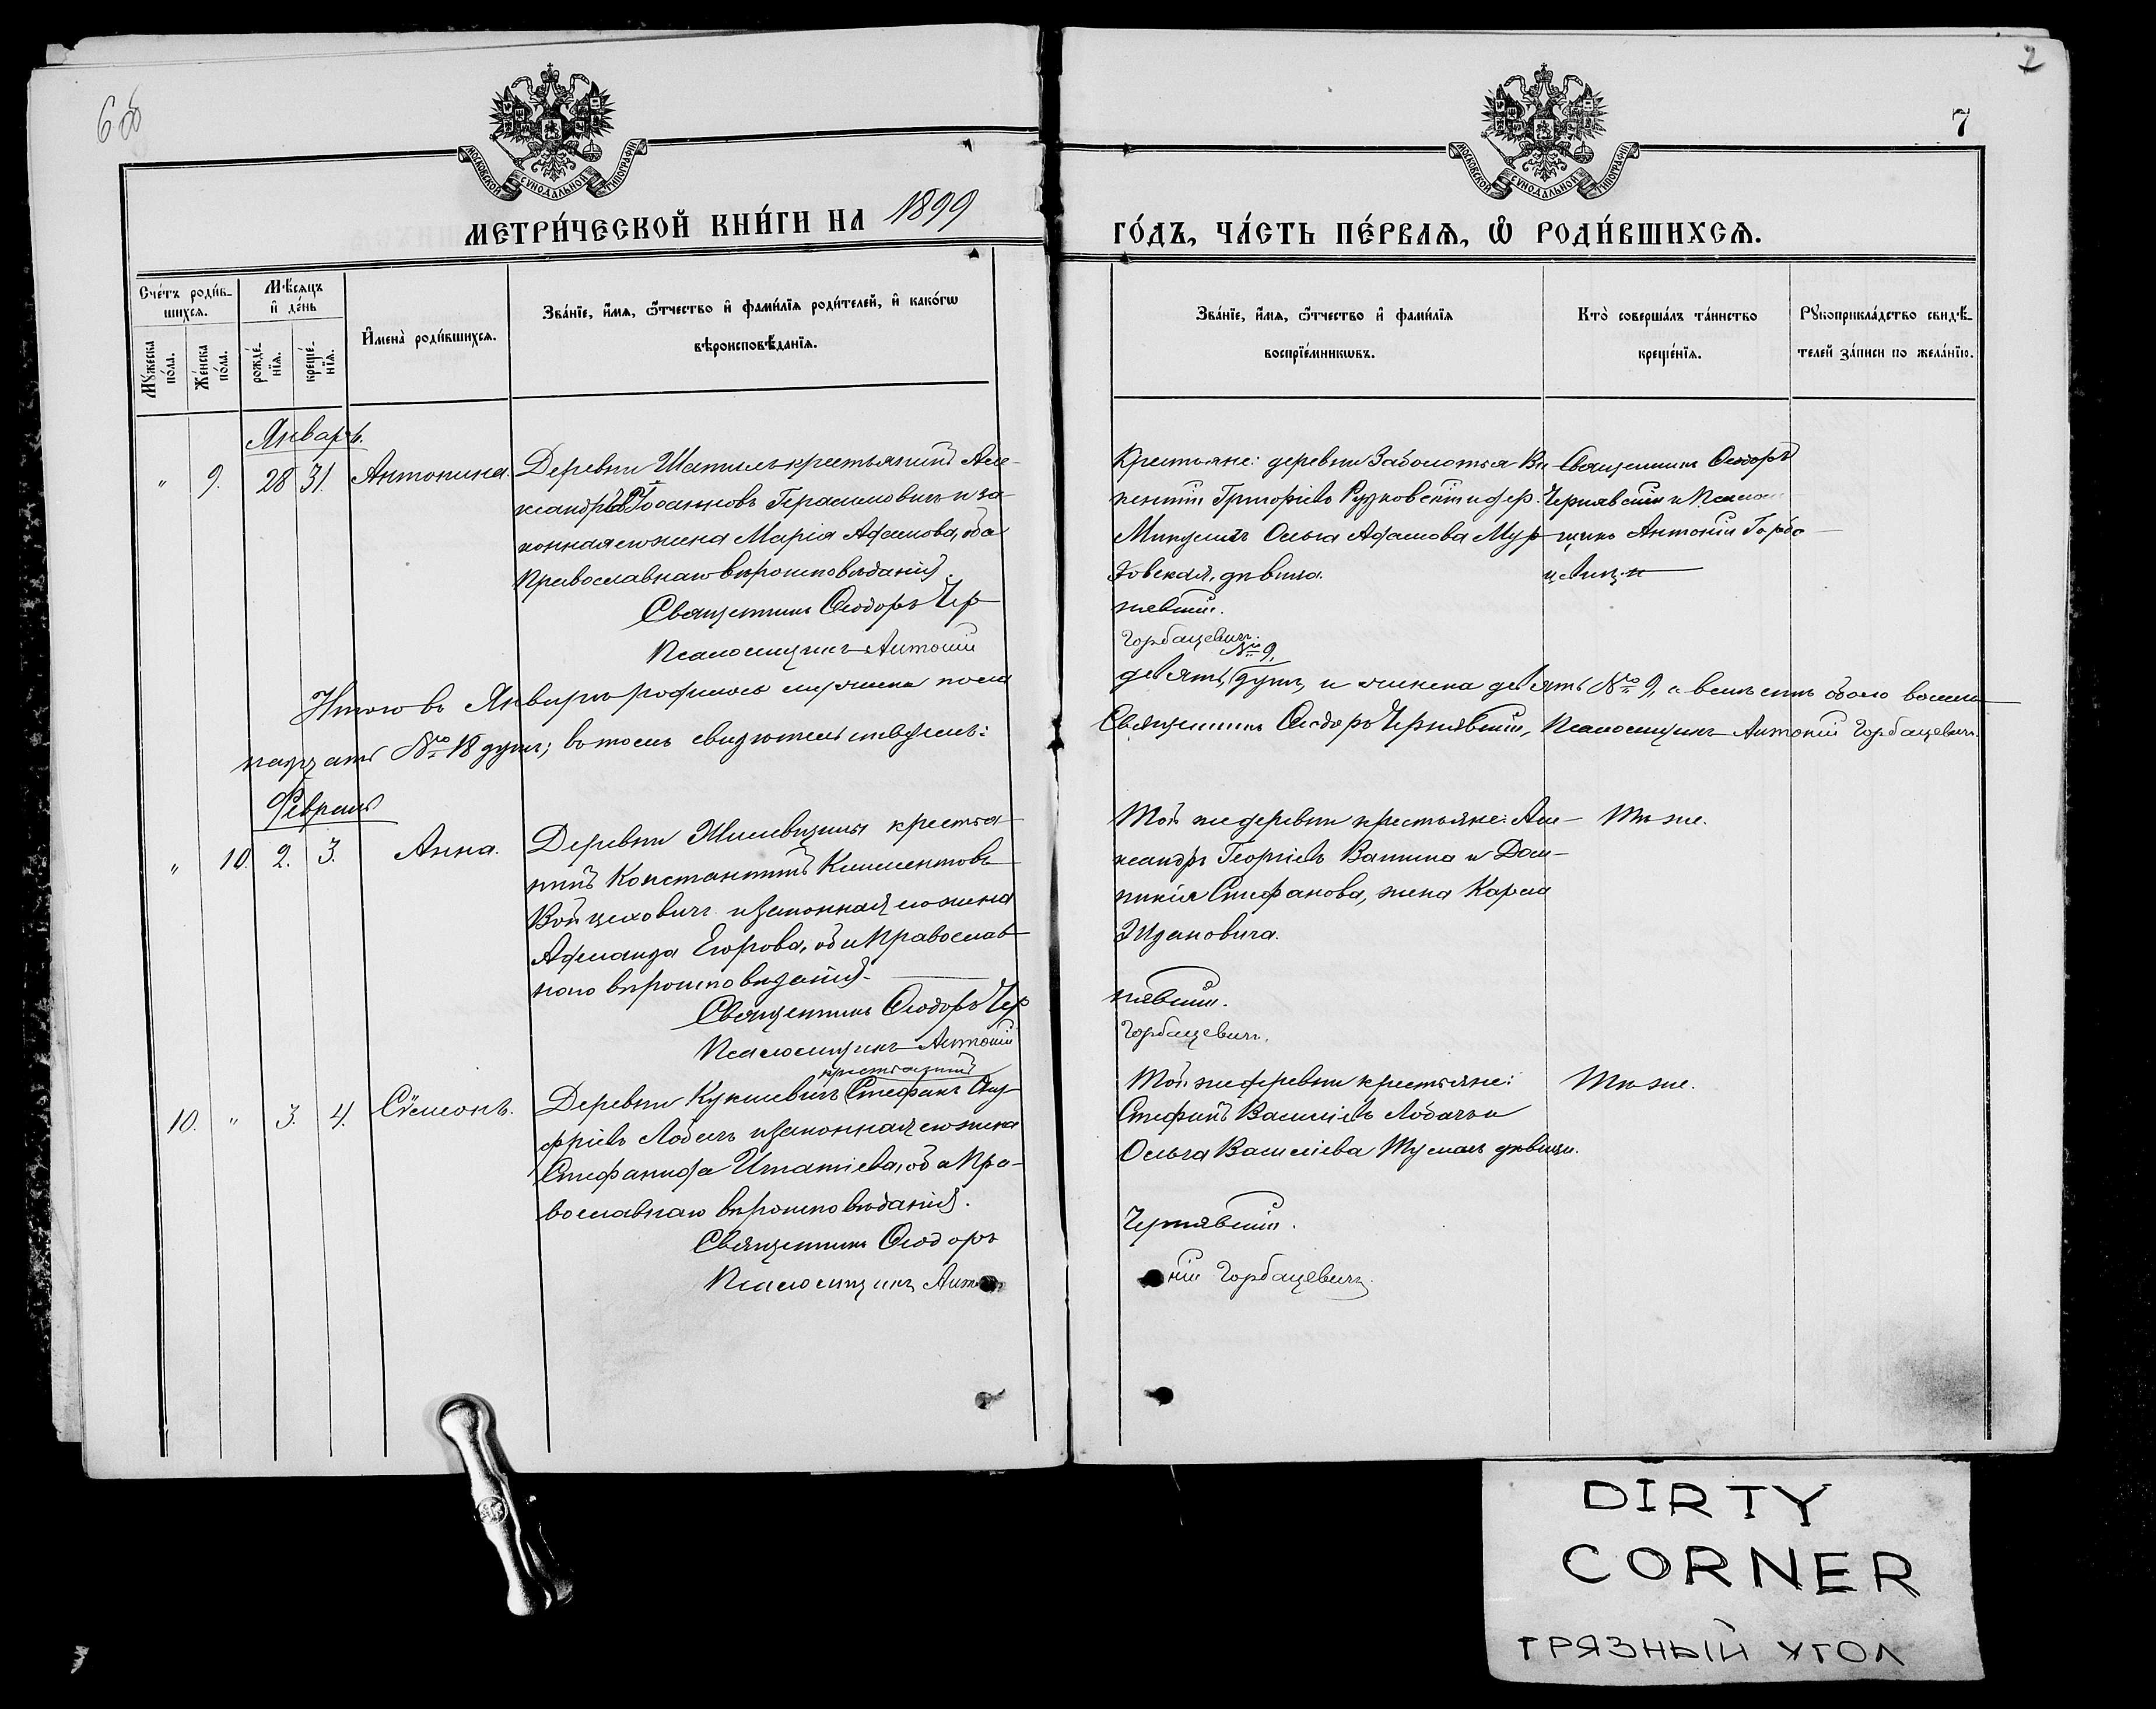 68
2
7
МОСКОВСКОЙ СѴНОДАЛЬНОЙ ТИПОГРАФІИ
МОСКОВСКОЙ СѴНОДАЛЬНОЙ ТИПОГРАФІИ
МЕТРИ́ЧЕСКОЙ КНИ́ГИ НА 1899
ГО́ДЪ, ЧА́СТЬ ПЕ́РВАѦ, Ѽ РОДИ́ВШИХСѦ.
Сче́тъ роди́в-
шихсѧ.
Мꙋ́жеска по́ла.
Же́нска по́ла.
Мѣ́сѧцъ
и҆ де́нь
рожде́-
нїѧ.
креще́-
нїѧ.
И҆мена̀ роди́вшихсѧ.
Зва́нїе, и҆́мѧ, ѻ҆́тчество и҆ фами́лїѧ роди́телей, и҆ како́гѡ
вѣроисповѣ́данїѧ.
Зва́нїе, и҆́мѧ, ѻ҆́тчество и҆ фами́лїѧ
воспрїе́мникѡвъ.
Кто̀ соверша́лъ та́инство
креще́нїѧ.
Рꙋкоприкла́дство свидѣ́-
телей за́писи по жела́нїю.
Январь.
" 9. 28 31. Антонина.
Деревни крестьянинъ Але-
ксандръ Іоанновъ Герасимовичъ и за-
конная его жена Марія Адамова, оба
Православнаго вѣроисповѣданія.
Священникъ Ѳеодоръ Чер
Псаломщикъ Антоній
Крестьяне: деревни Заболотья Ви-
кентій Григорьевъ Рудковскій и дер.
Микуличъ Ольга Адамова Мур-
зовская, дѣвица.
нявскій.
Горбацевичъ.
Священникъ Ѳеодоръ
Чернявскій и Псалом
щикъ Антоній Горба-
цевичъ
Итого въ Январѣ родилось мужеска пола
девять № 9. душъ, и женска девять № 9, а всѣхъ обоего восем-
надцать № 18 душъ; въ томъ свидѣтельствуемъ:
Священникъ Ѳеодоръ Чернявскій, Псаломщикъ Антоній Горбацевичъ.
Февраль
" 10. 2. 3. Анна.
Деревни крестья-
нинъ Константинъ Климентовъ
Войцеховичъ и законная его жена
Егорова, оба Православ-
наго вѣроисповѣданія.
Священникъ Ѳеодоръ Чер
Псаломщикъ Антоній
Той же деревни крестьяне: Але-
ксандръ Георгіевъ и Дом-
никія Стефанова, жена Карла
Ждановича.
нявскій.
Горбацевичъ.
Тѣ же.
10. " 3. 4. Сѵмеонъ.
крестьянинъ
Деревни Стефанъ Ону-
фріевъ Лобачъ и законная его жена
Стефанида Игнатіева, оба Пра-
вославнаго вѣроисповѣданія.
Священникъ Ѳеодоръ
Псаломщикъ Анто
Той же деревни крестьяне:
Стефанъ Василіевъ Лобачъ и
Ольга Василіева дѣвица.
Чернявскій.
ній Горбацевичъ.
Тѣ же.
DIRTY
CORNER
ГРЯЗНЫЙ УГОЛ